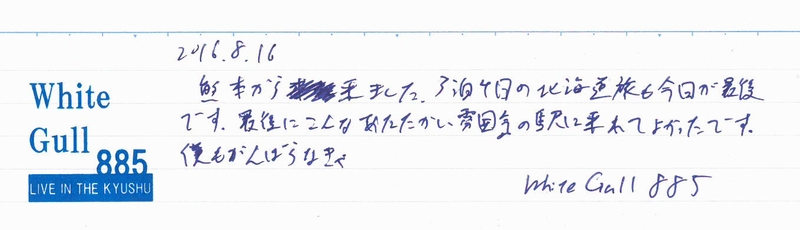 White
Gull
885
LIVE IN THE KYUSHU
2016.8.16
熊本から来ました。3泊4日の北海道旅も今日が最後
です。最後にこんなあたたかい雰囲気の駅に来れてよかったです。
僕もがんばらなきゃ
White Gull 885